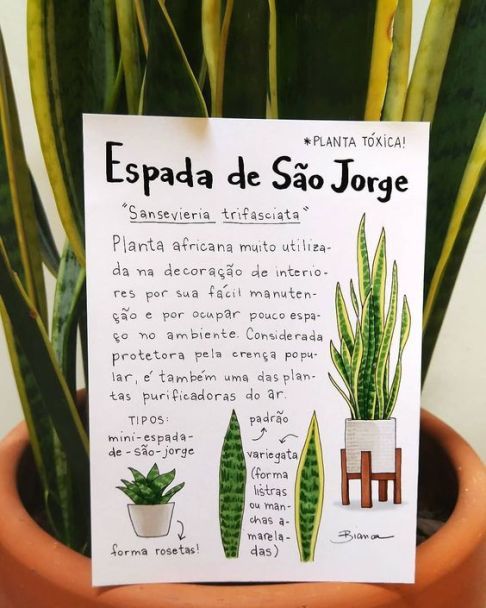 *PLANTA TÓXICA!
Espada de São Jorge
"Sansevieria trifasciata"
Planta africana muito utiliza-
da na decoração de interio-
res por sua fácil manuten-
ção e por ocupar pouco espa-
ço no ambiente. Considerada
protetora pela crença popu-
lar, é também uma das plan-
tas purificadoras do ar.
TIPOS:
mini-espada-
de-são-jorge
forma rosetas!
padrão
variegata
(forma
listras
ou man-
chas a-
marela-
das)
Bianca